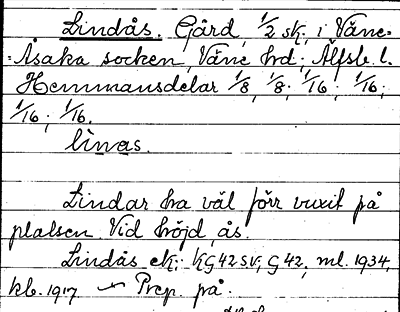 Lindås. Gård, 1/2 sk, i Väne-
-Åsaka socken, Väne hrd; Älfsb. l.
Hemmansdelar 1/8, 1/8; 1/16; 1/16;
1/16; 1/16.
linas.
Lindar ha väl förr vuxit på
platsen. Vid höjd, ås.
Lindås ek; KG 42 SV; G 42, ml. 1934,
kb. 1917 Prep. på.